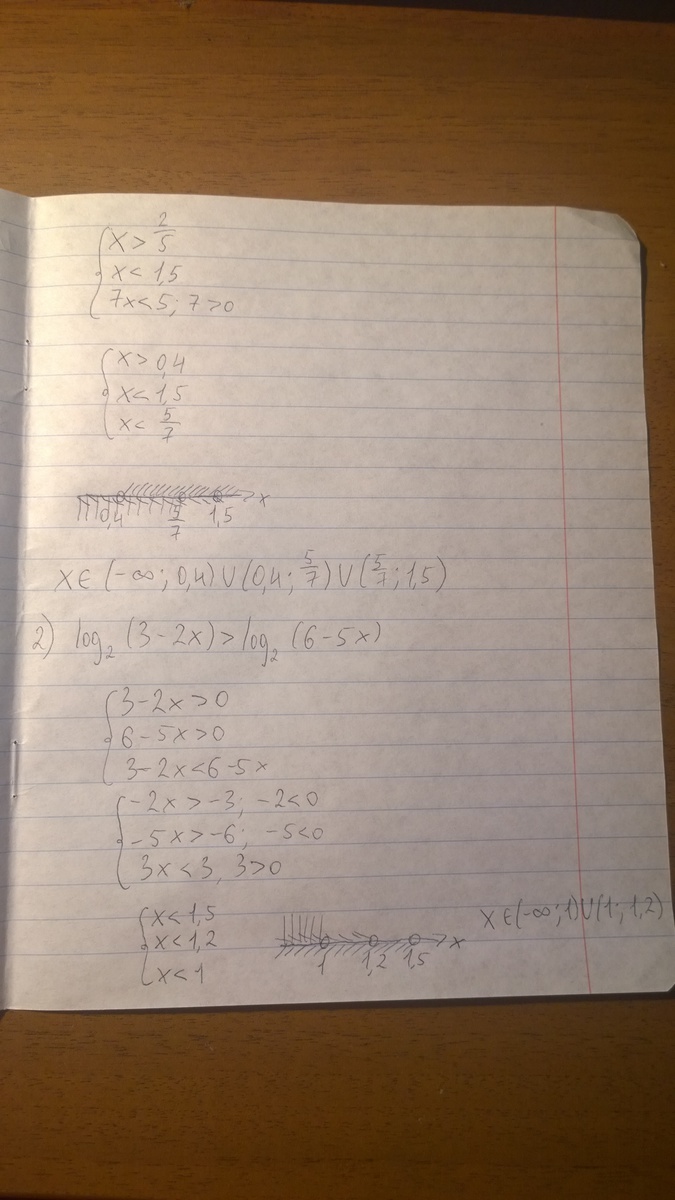 x > 2/5
x < 1,5
7x < 5; 7 > 0
x > 0,4
x < 1,5
x < 5/7
0,4 5/7 1,5 x
x ∈ (-∞; 0,4) ∪ (0,4; 5/7) ∪ (5/7; 1,5)
2) log₂ (3-2x) > log₂ (6-5x)
3-2x > 0
6-5x > 0
3-2x < 6-5x
-2x > -3; -2 < 0
-5x > -6; -5 < 0
3x < 3, 3 > 0
x < 1,5
x < 1,2
x < 1
1 1,2 1,5 x
x ∈ (-∞; 1) ∪ (1; 1,2)